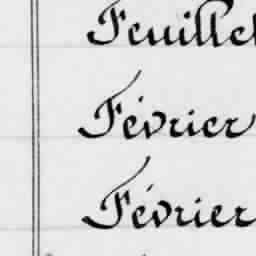 Feuillet
Février
Février